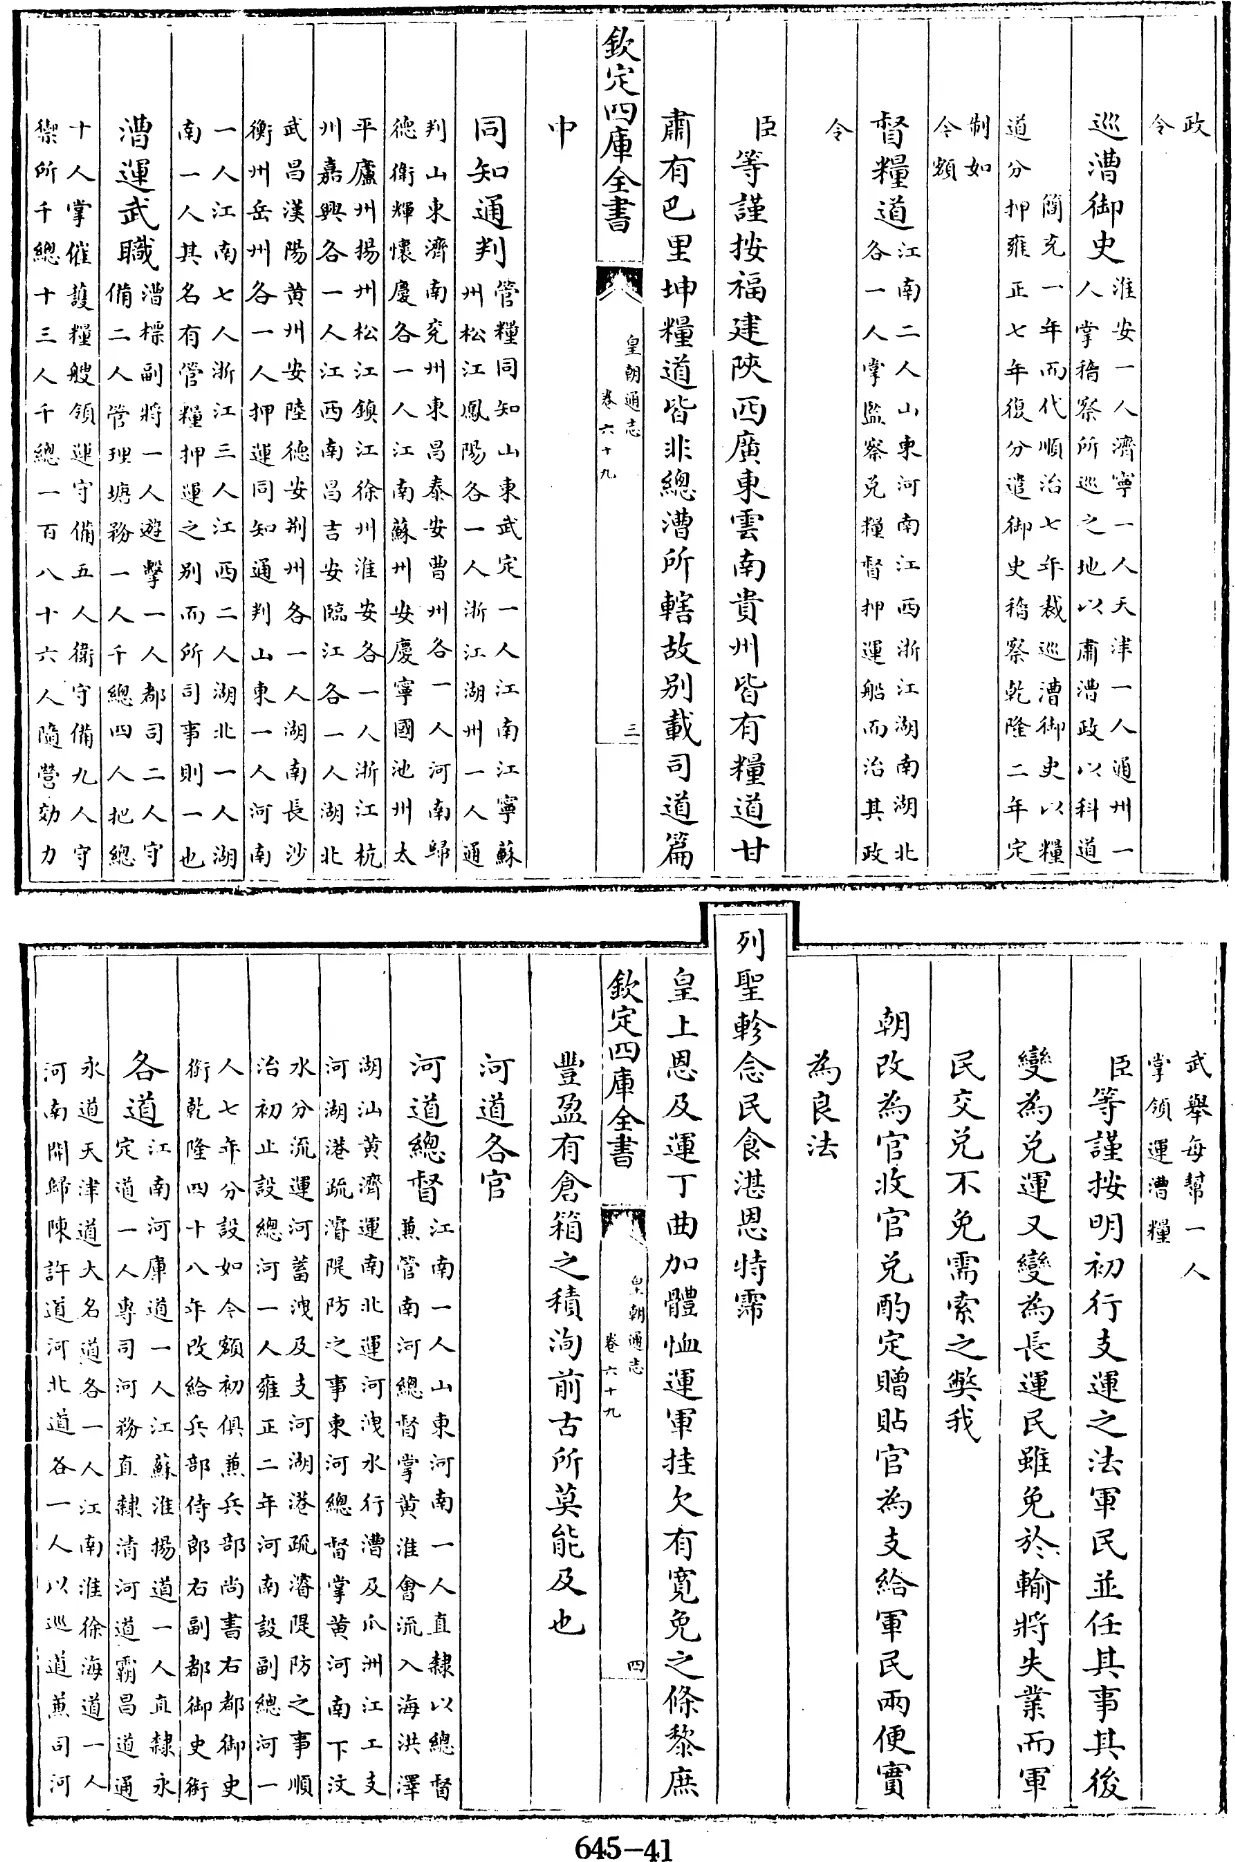 政
令
巡漕御史淮安一人濟寧一人天津一人通州一
人掌稽察所巡之地以肅漕政以科道
簡充一年而代順治七年裁巡漕御史以糧
道分押雍正七年復分遣御史稽察乾隆二年定
制如
今額
督糧道江南二人山東河南江西浙江湖南湖北
各一人掌監察兌糧督押運船而治其政
令
臣等謹按福建陝西廣東雲南貴州皆有糧道甘
肅有巴里坤糧道皆非總漕所轄故别載司道篇
欽定四庫全書
皇朝通志
卷六十九
三
中
同知通判管糧同知山東武定一人江南江寧蘇
州松江鳳陽各一人浙江湖州一人通
判山東濟南兗州東昌泰安曹州各一人河南歸
德衛輝懷慶各一人江南蘇州安慶寧國池州太
平廬州揚州松江鎮江徐州淮安各一人浙江杭
州嘉興各一人江西南昌吉安臨江各一人湖北
武昌漢陽黃州安陸德安荆州各一人湖南長沙
衡州岳州各一人押運同知通判山東一人河南
一人江南七人浙江三人江西二人湖北一人湖
南一人其名有管糧押運之别而所司事則一也
漕運武職漕標副將一人遊擊一人都司二人守
備二人管理塘務一人千總四人把總
十人掌催護糧艘領運守備五人衛守備九人守
禦所千總十三人千總一百八十六人隨營効力
武舉每幫一人
掌領運漕糧
臣等謹按明初行支運之法軍民並任其事其後
變為兌運又變為長運民雖免於輸將失業而軍
民交兌不免需索之獘我
朝改為官收官兌酌定贈貼官為支給軍民兩便實
為良法
列聖軫念民食湛恩特霈
皇上恩及運丁曲加體恤運軍挂欠有寬免之條黎庶
欽定四庫全書
皇朝通志
卷六十九
四
豐盈有倉箱之積洵前古所莫能及也
河道各官
河道總督江南一人山東河南一人直隸以總督
兼管南河總督掌黃淮會流入海洪澤
湖汕黃濟運南北運河洩水行漕及瓜洲江工支
河湖港疏濬隄防之事東河總督掌黃河南下汶
水分流運河蓄洩及支河湖港疏濬隄防之事順
治初止設總河一人雍正二年河南設副總河一
人七年分設如今額初俱兼兵部尚書右都御史
銜乾隆四十八年改給兵部侍郎右副都御史銜
各道江南河庫道一人江蘇淮揚道一人直隸永
定道一人專司河務直隸清河道霸昌道通
永道天津道大名道各一人江南淮徐海道一人
河南開歸陳許道河北道各一人以巡道兼司河
645-41